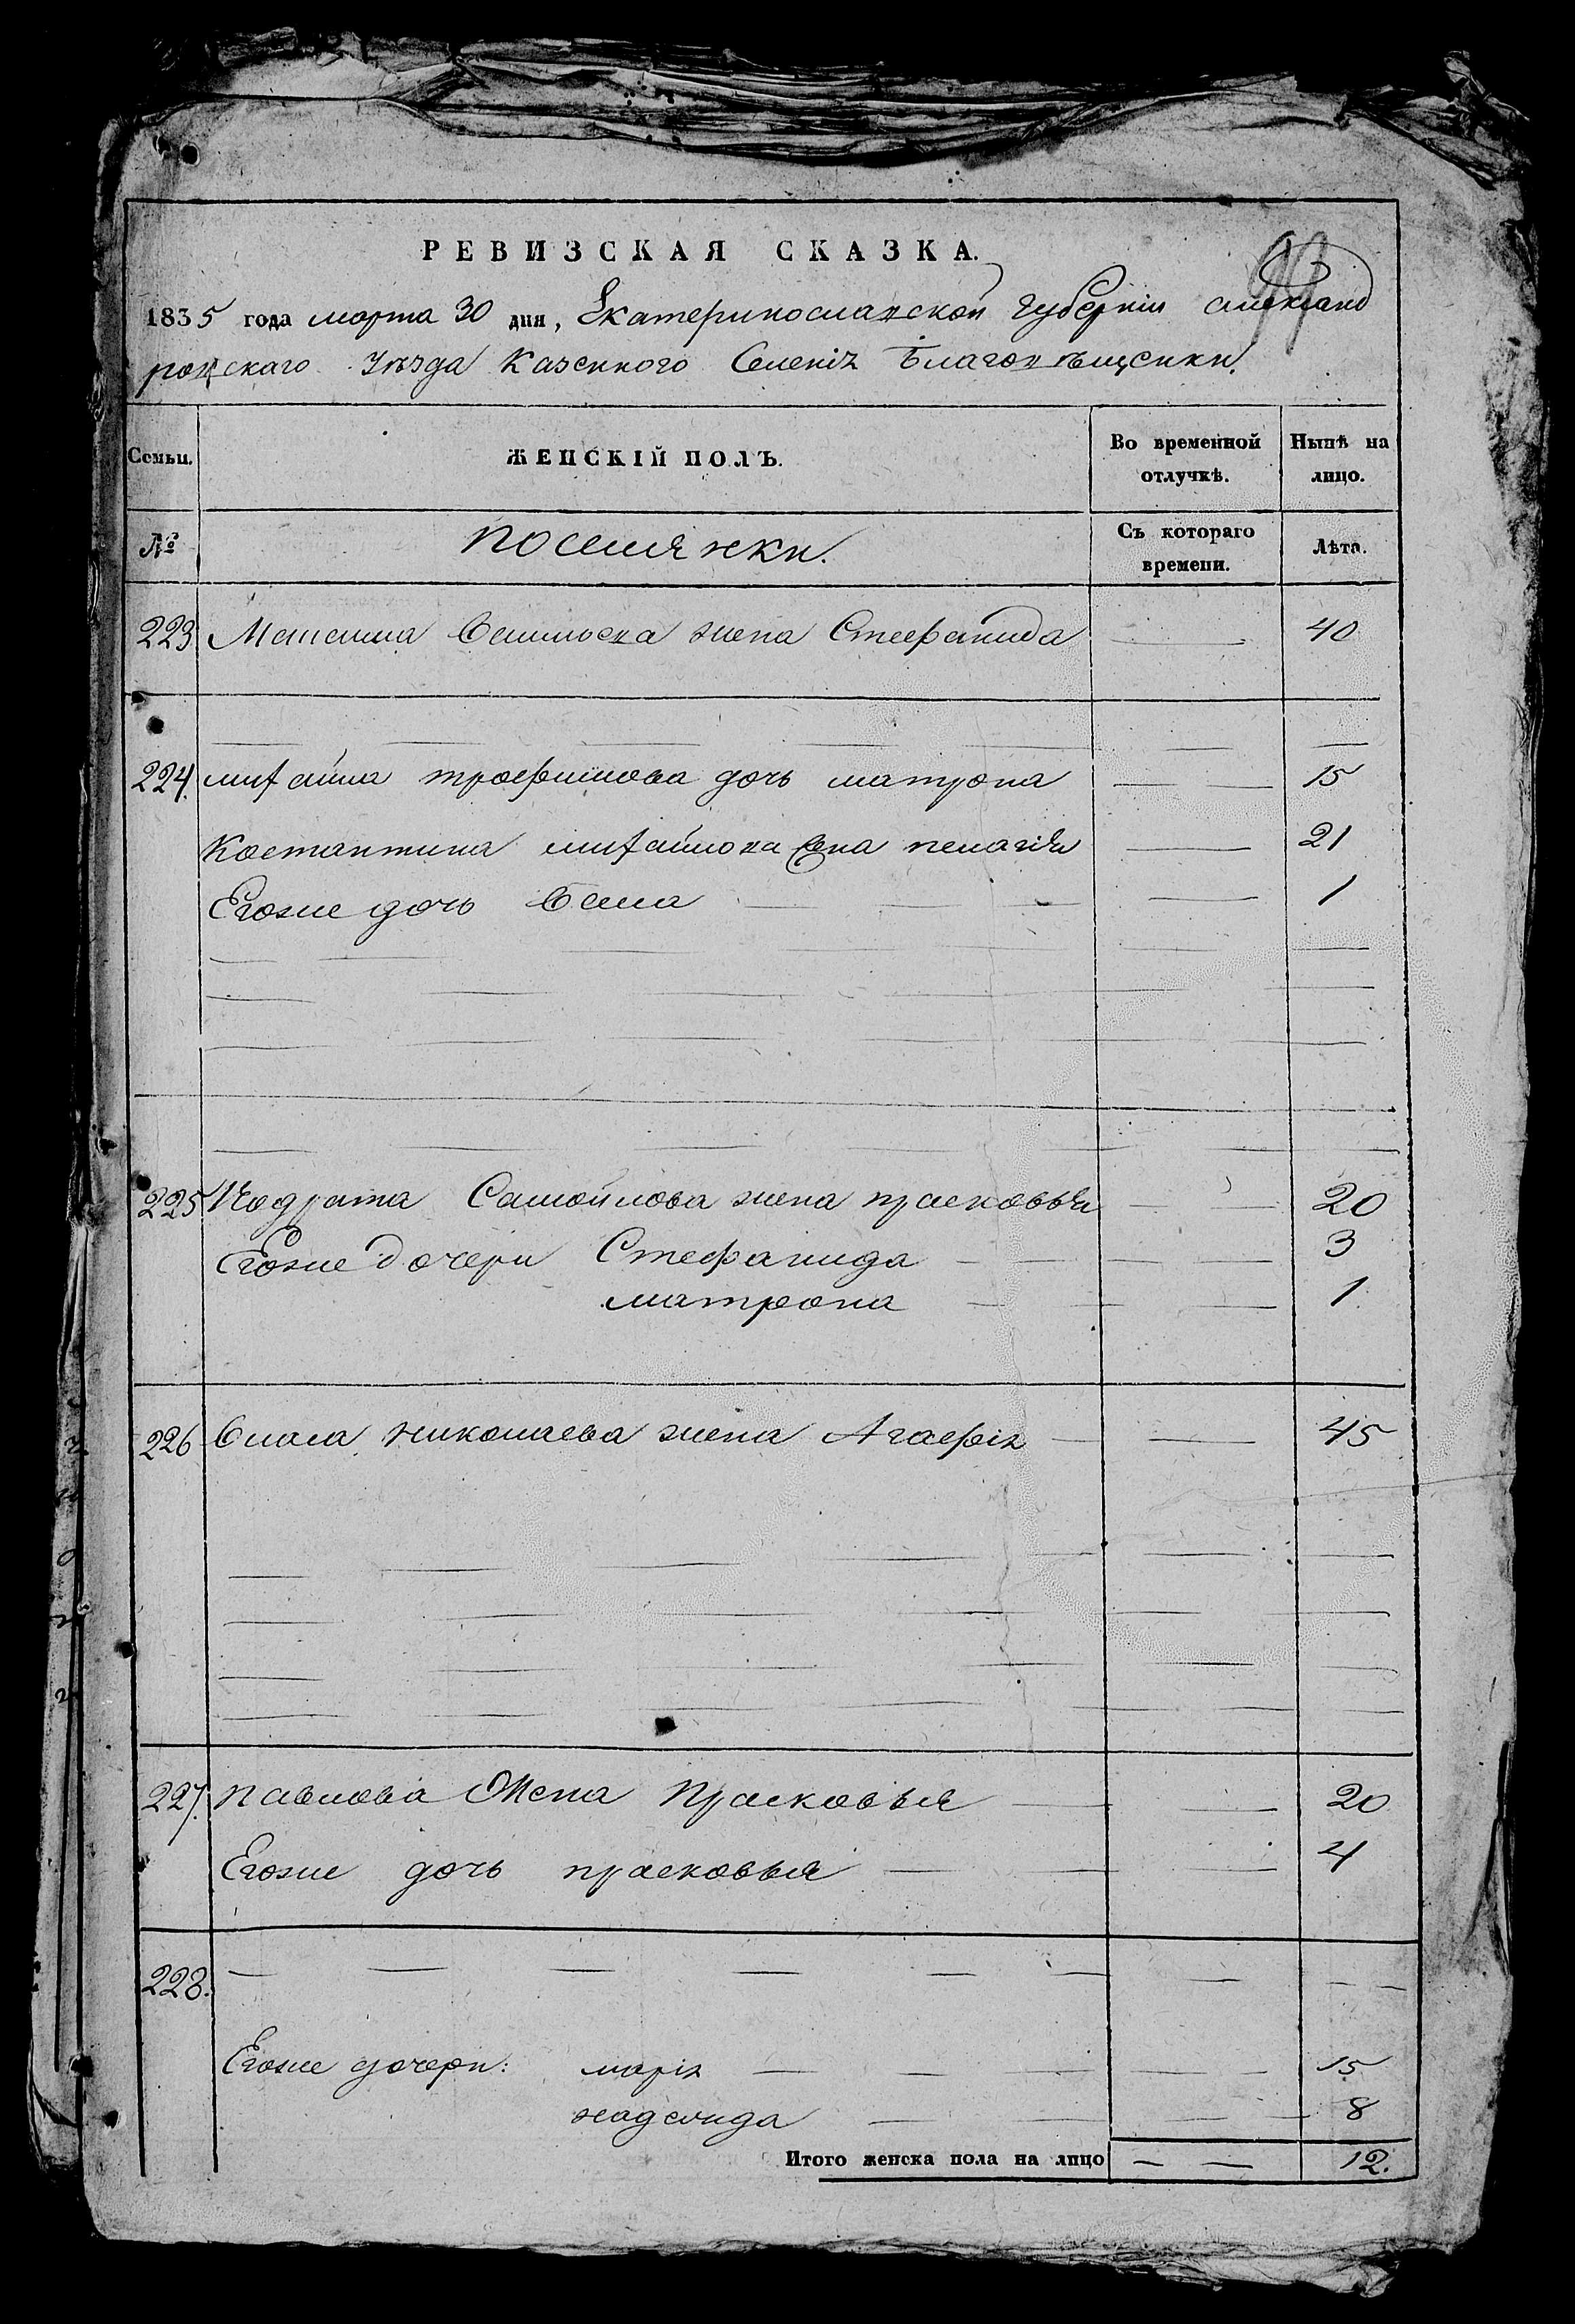 РЕВИЗСКАЯ СКАЗКА.
1835 года марта 30 дня, Екатеринославской Губерніи Александ
ровскаго Уѣзда Казенного Селенія Благовѣщенки.
Семьи. ЖЕНСКІЙ ПОЛЪ. Во временной отлучкѣ. Нынѣ на лицо.
№ Поселянки. Съ котораго времени. Лѣта.
223 Василева жена Стефанида 40
224. михайла трофимова дочь матрона 15
Костантина михайлова жена пелагія 21
Егоже дочь 1
225 Кодрата Самойлова жена прасковья 20
Егоже дочери Стефанида 3
матрона 1
226 Власа николаева жена Агафія 45
227. павлова Жена Прасковья 20
Егоже дочь прасковья 4
228.
Егоже дочери: марія 15
надежда 8
Итого женска пола на лицо 12.